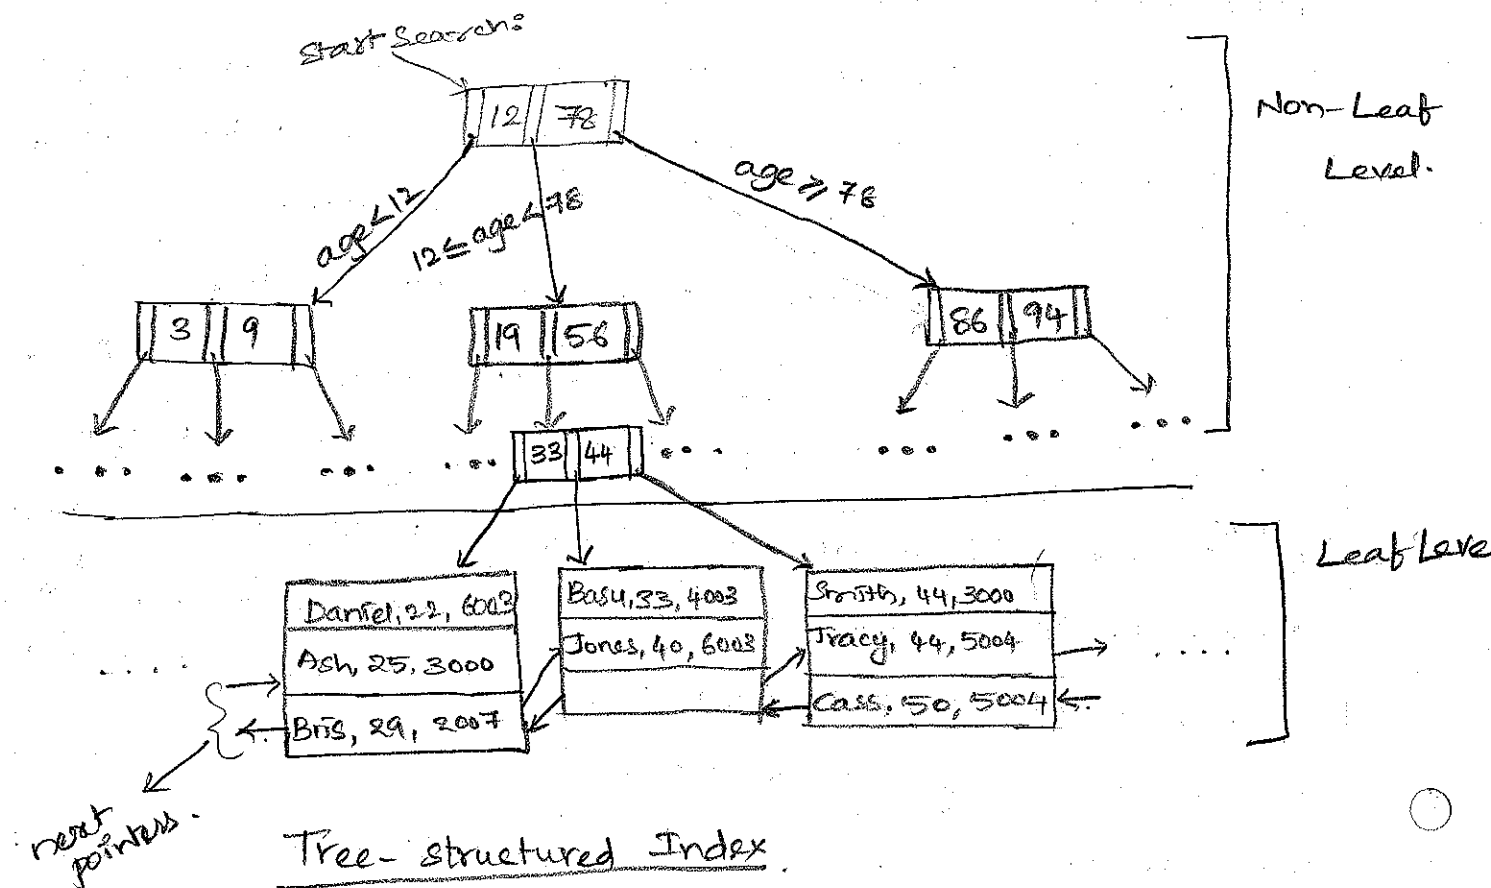 Start Search:
12 78
Non-Leaf
Level.
age<12
12≤age<78
age≥78
3 9
19 56
86 94
... ... ... ... 33 44 ... ... ... ...
Leaf Leve
Daniel, 22, 6003
Ash, 25, 3000
Bris, 29, 2007
Basu, 33, 4003
Jones, 40, 6003
Smith, 44, 3000
Tracy, 44, 5004
Cass, 50, 5004
.... ....
next
pointers.
Tree-structured Index.